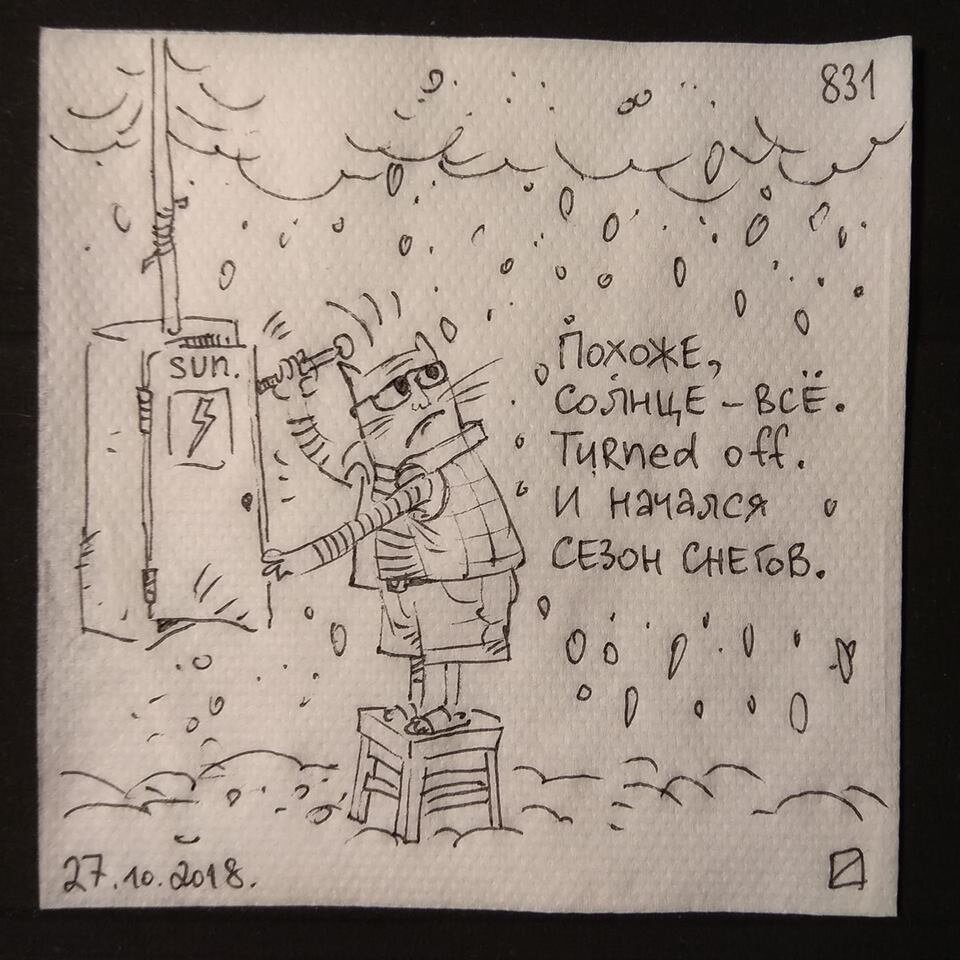 831
sun.
Похоже,
солнце – всё.
Turned off.
И начался
сезон снегов.
27.10.2018.